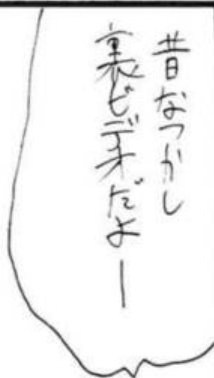 昔なつかし
裏ビデオだよー